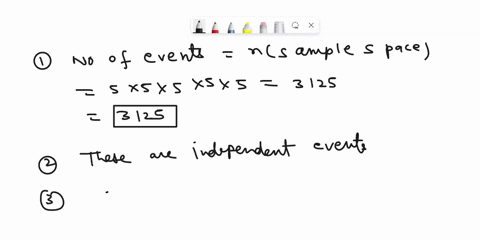 ① No of events = n(sample space)
= 5 × 5 × 5 × 5 × 5 = 3125
= 3125
② These are independent events
③